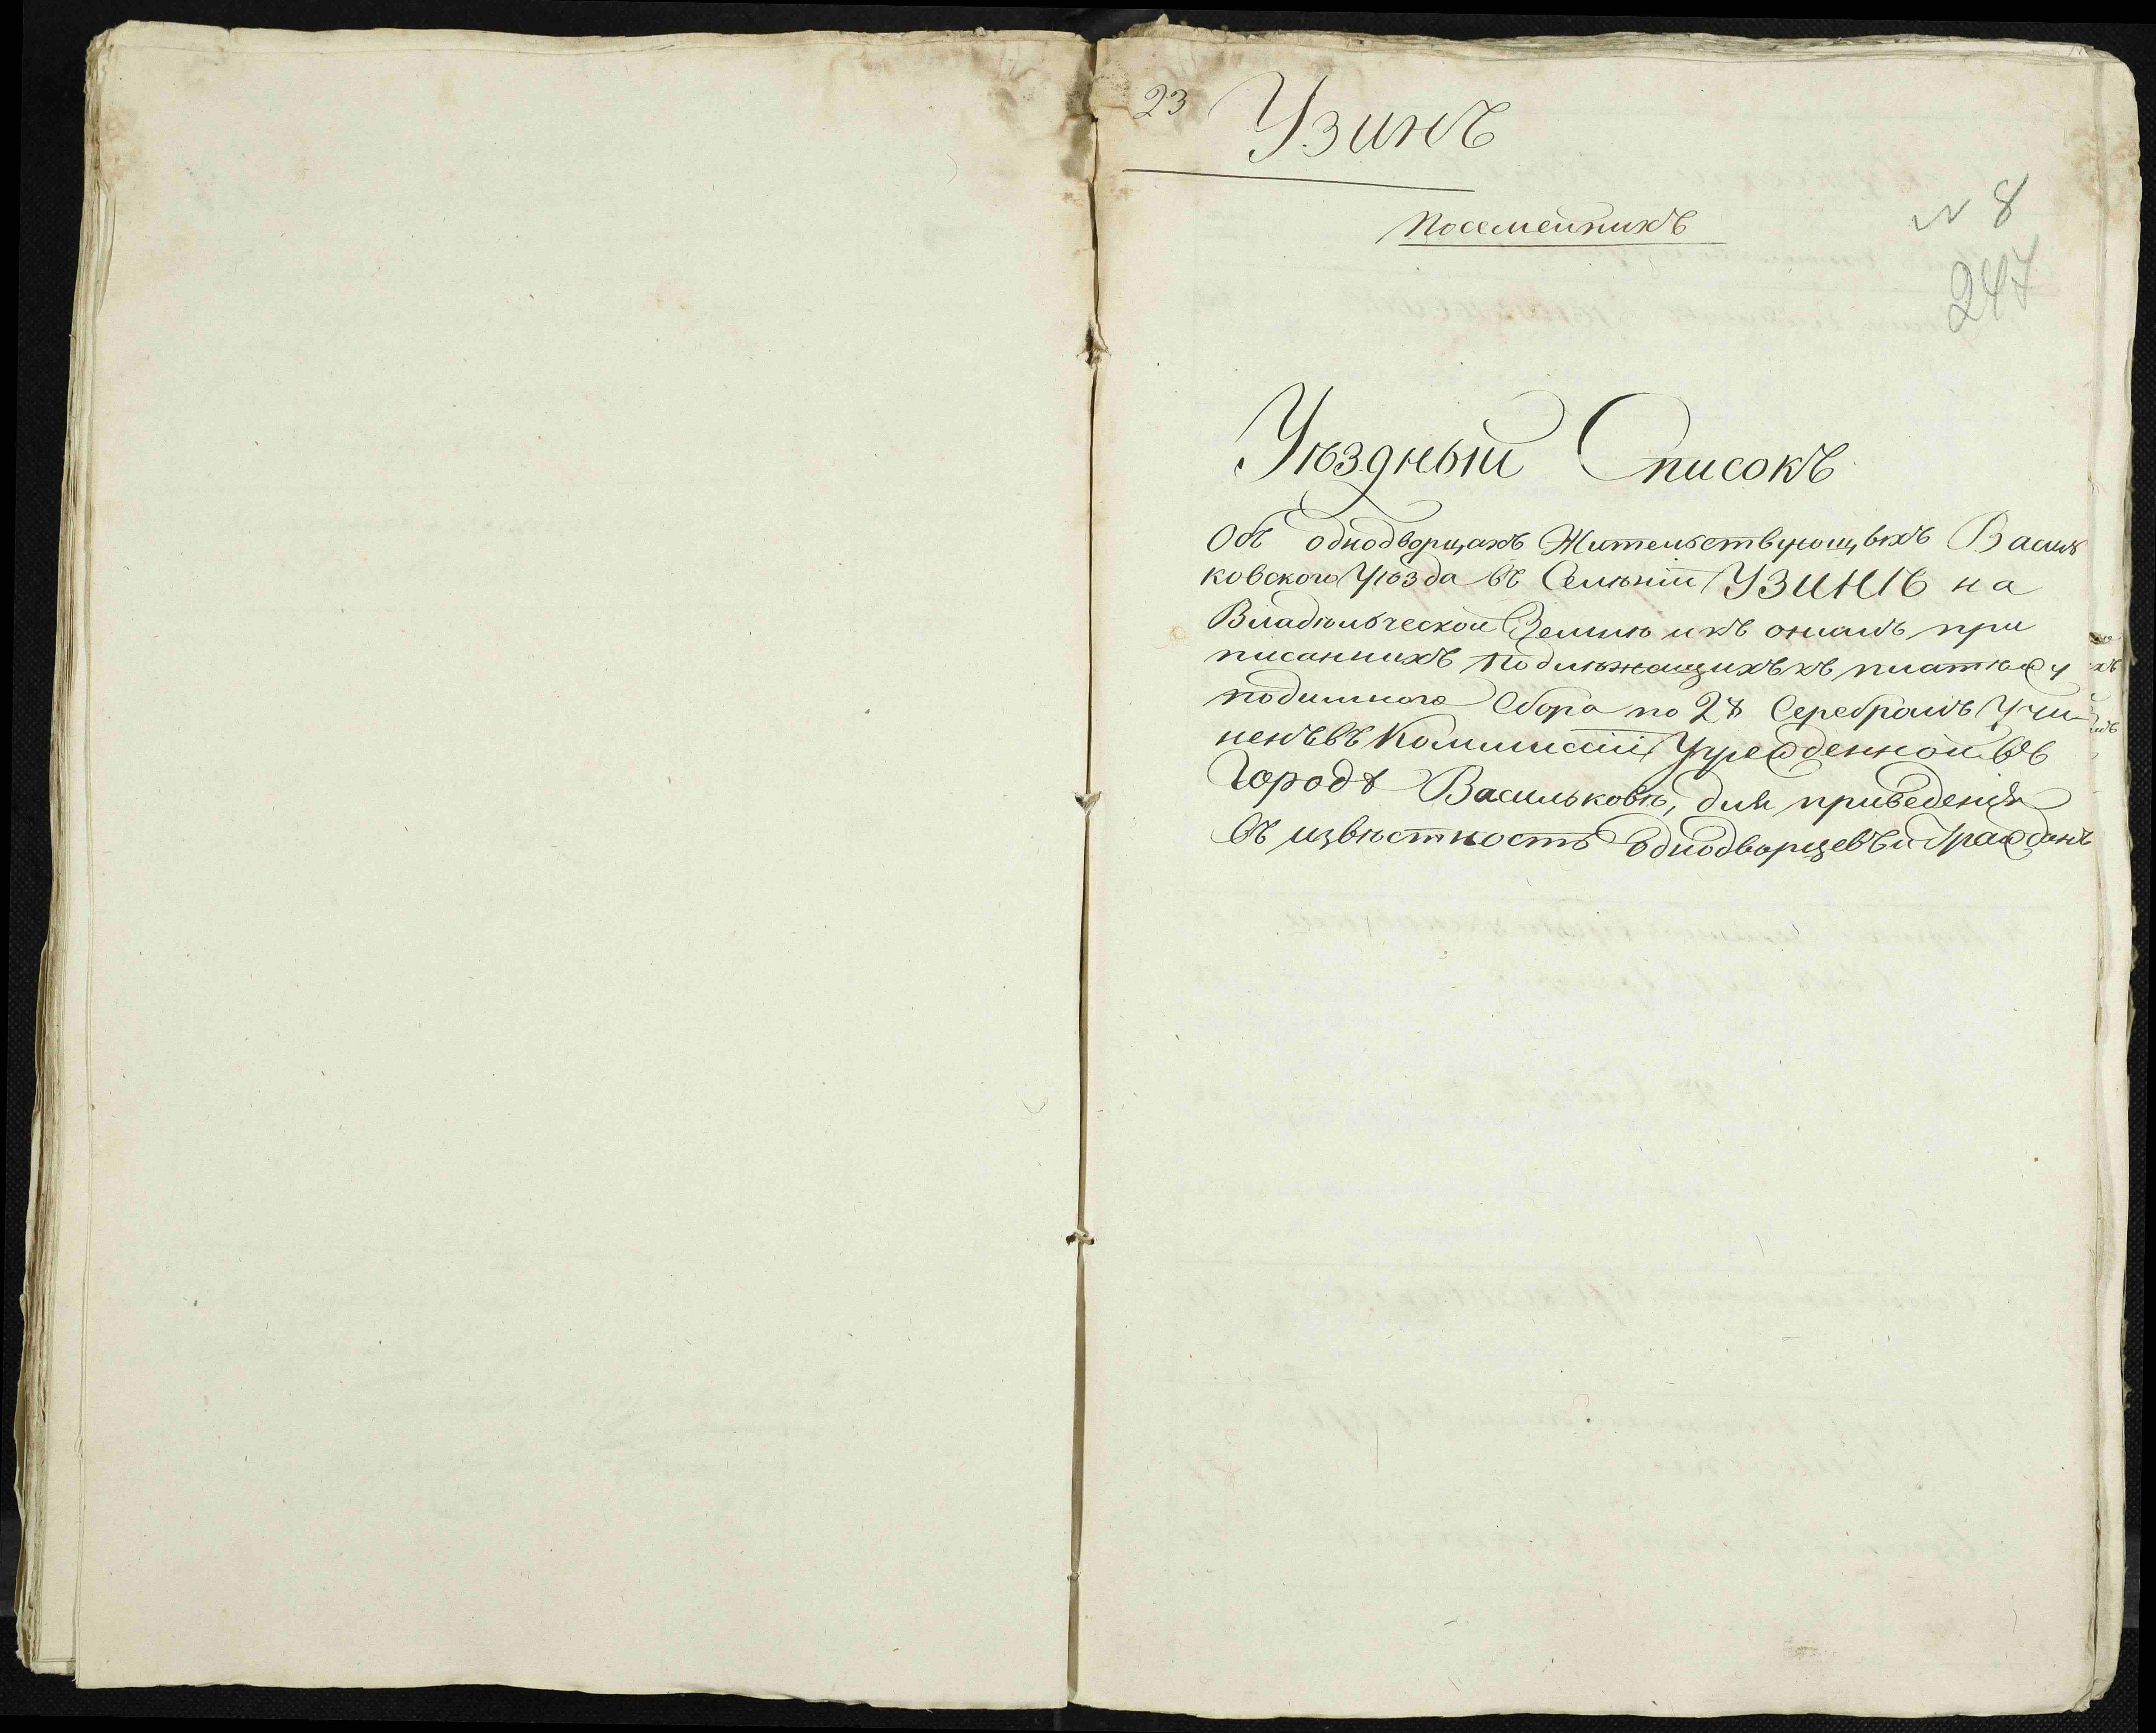 23 Узинъ
Посемейникъ
N 8
247
Уѣздный Списокъ
Объ однодворцахъ Жительствующыхъ Василь
ковского Уѣзда въ Селѣніи УЗИНѢ на
Владѣльческой Землѣ икъ онымъ при
писанныхъ подлѣжащихъ къ платѣжу
подымного Сбора по 2 р Серебромъ Учи
ненъ въ Коммиссіи Учрежденной въ
Городѣ Васильковѣ, для приведенія
въ извѣстность однодворцевъ и Гражданъ